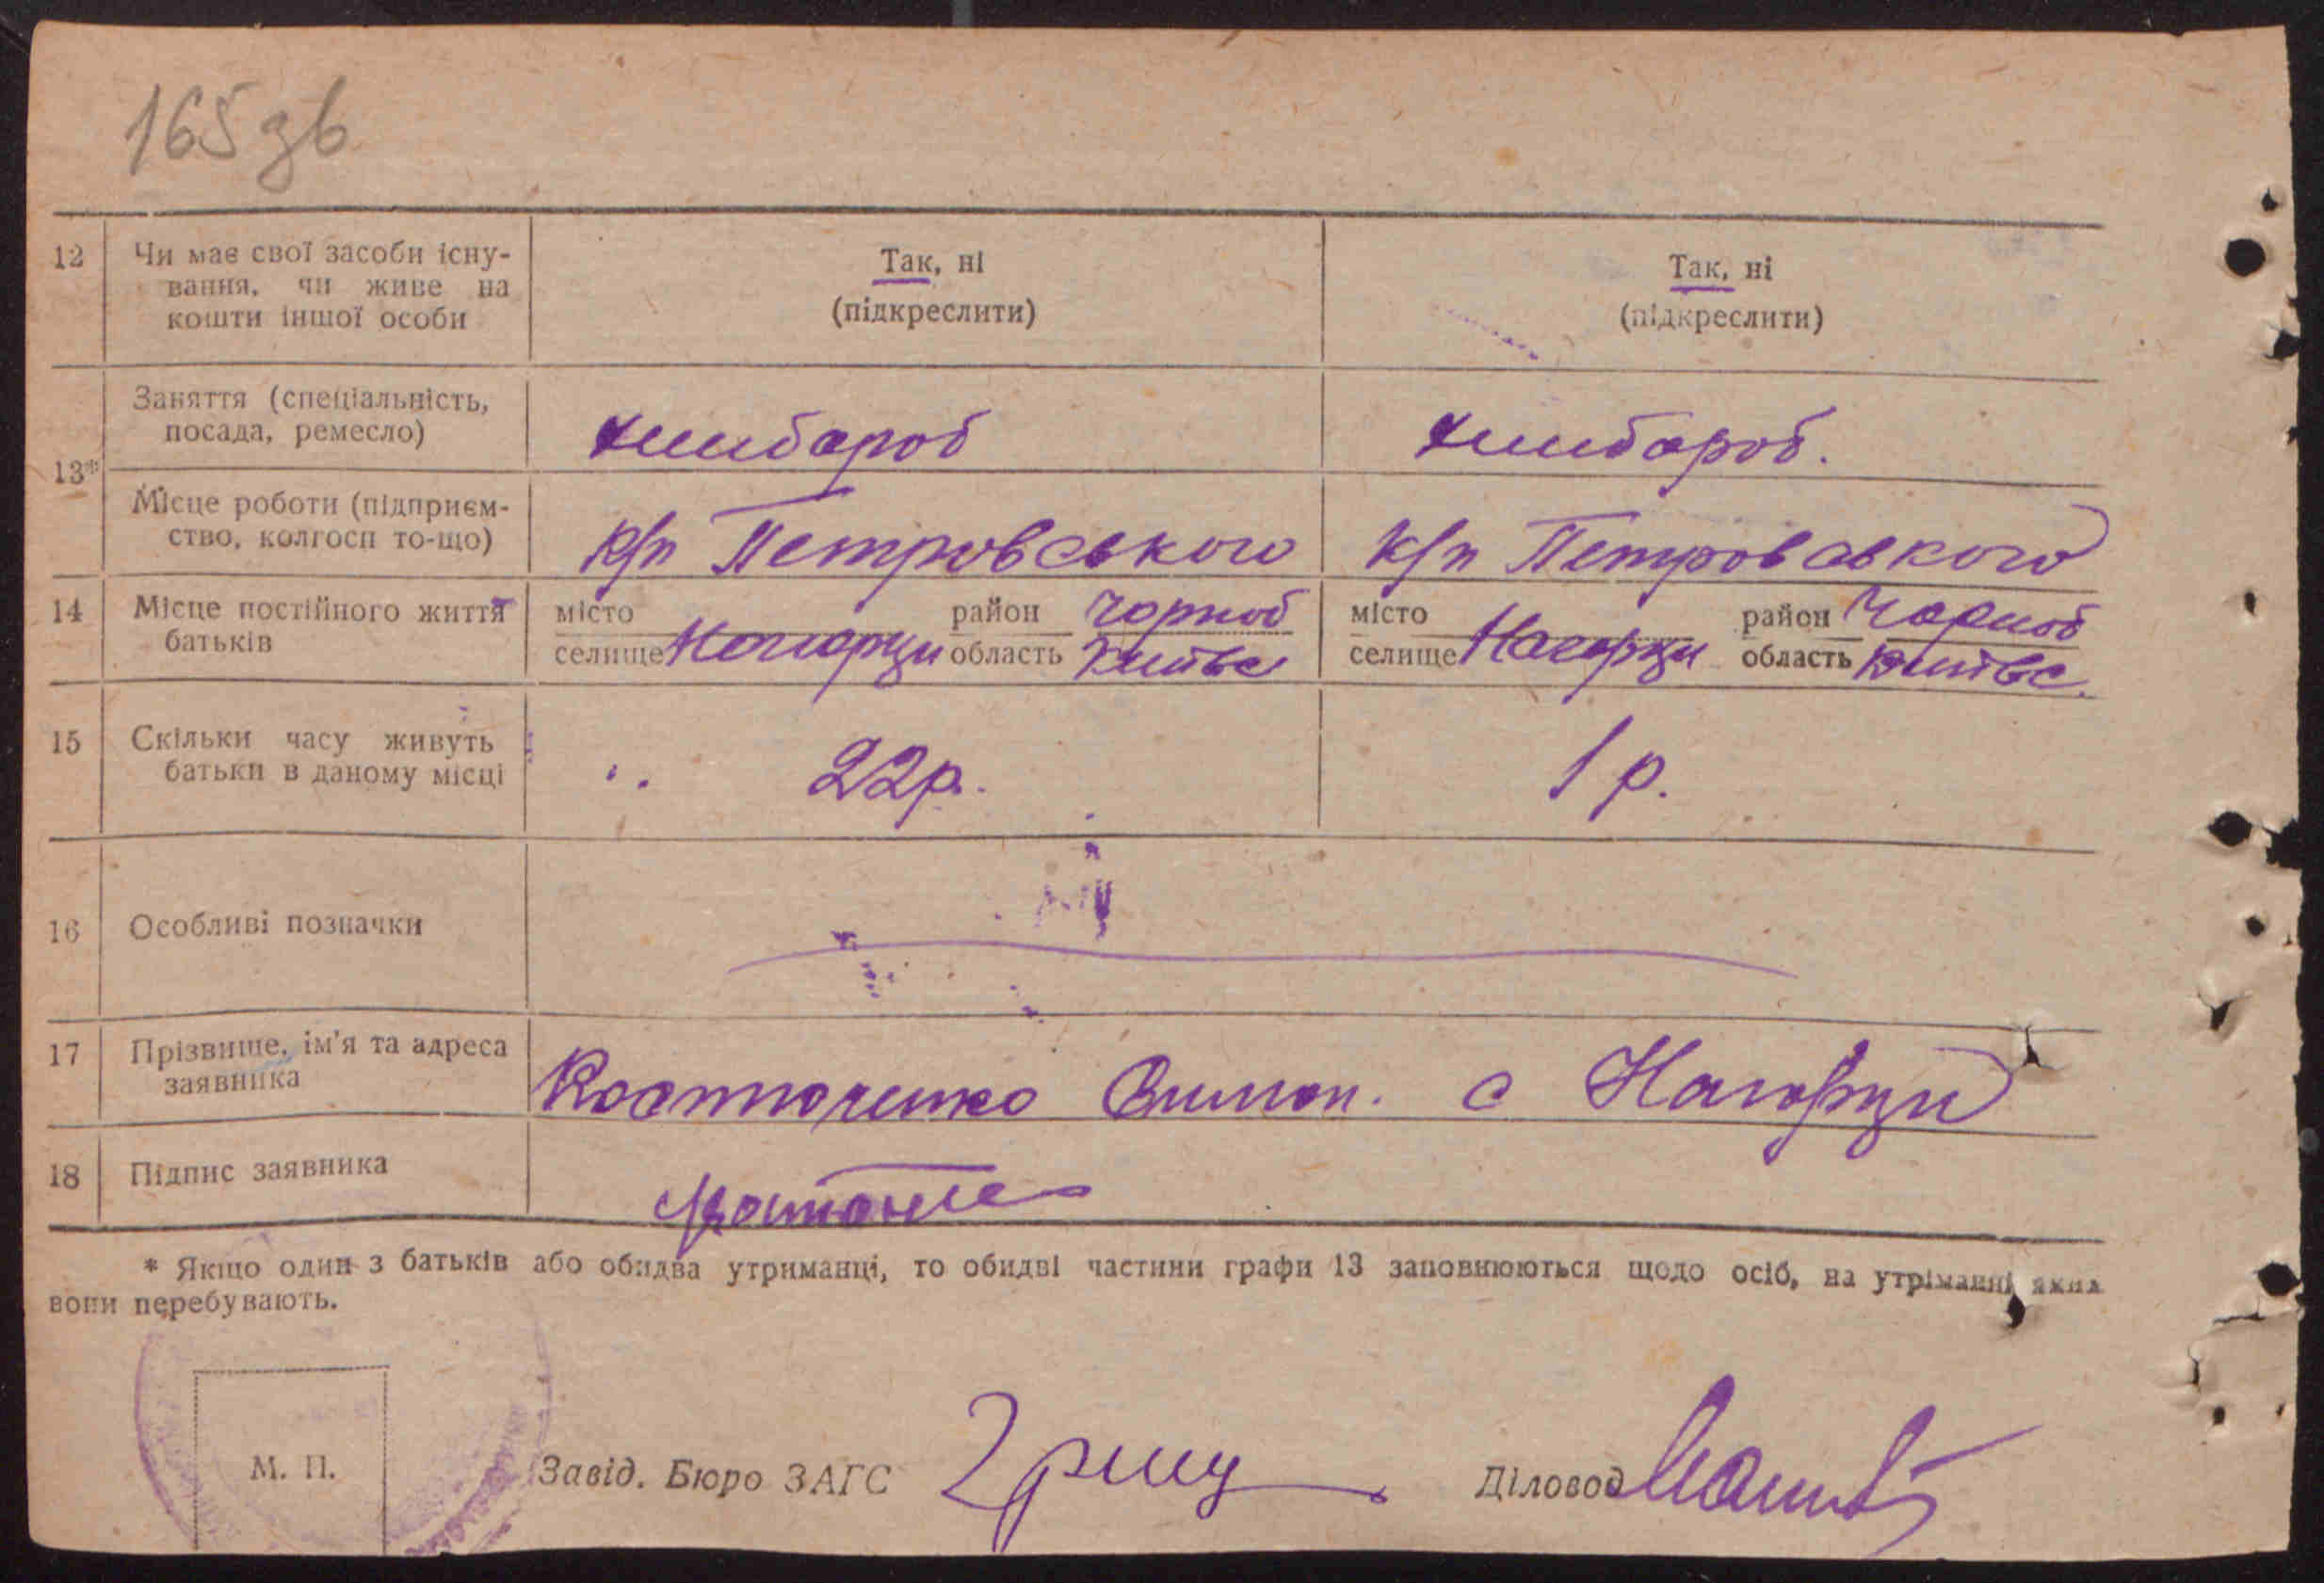 165 зв
12 Чи має свої засоби існу-
вання, чи живе на
кошти іншої особи
Так, ні
(підкреслити)
Так, ні
(підкреслити)
13*
Заняття (спеціальність,
посада, ремесло)
хлибороб
хлибороб.
Місце роботи (підприєм-
ство, колгосп то-що)
к/п Петровського
к/п Петровського
14 Місце постійного життя
батьків
місто
селище Нагорци
район Чорноб
область Київс
місто
селище Нагорци
район Чорноб
область Київс.
15 Скільки часу живуть
батьки в даному місці
22р.
1 р.
16 Особливі позначки
17 Прізвище, ім'я та адреса
заявника
Костюченко с Нагорци
18 Підпис заявника
* Якщо один з батьків або обидва утриманці, то обидві частини графи 13 заповнюються щодо осіб, на утріманні яких
вони перебувають.
М. П.
Завід. Бюро ЗАГС
Діловод